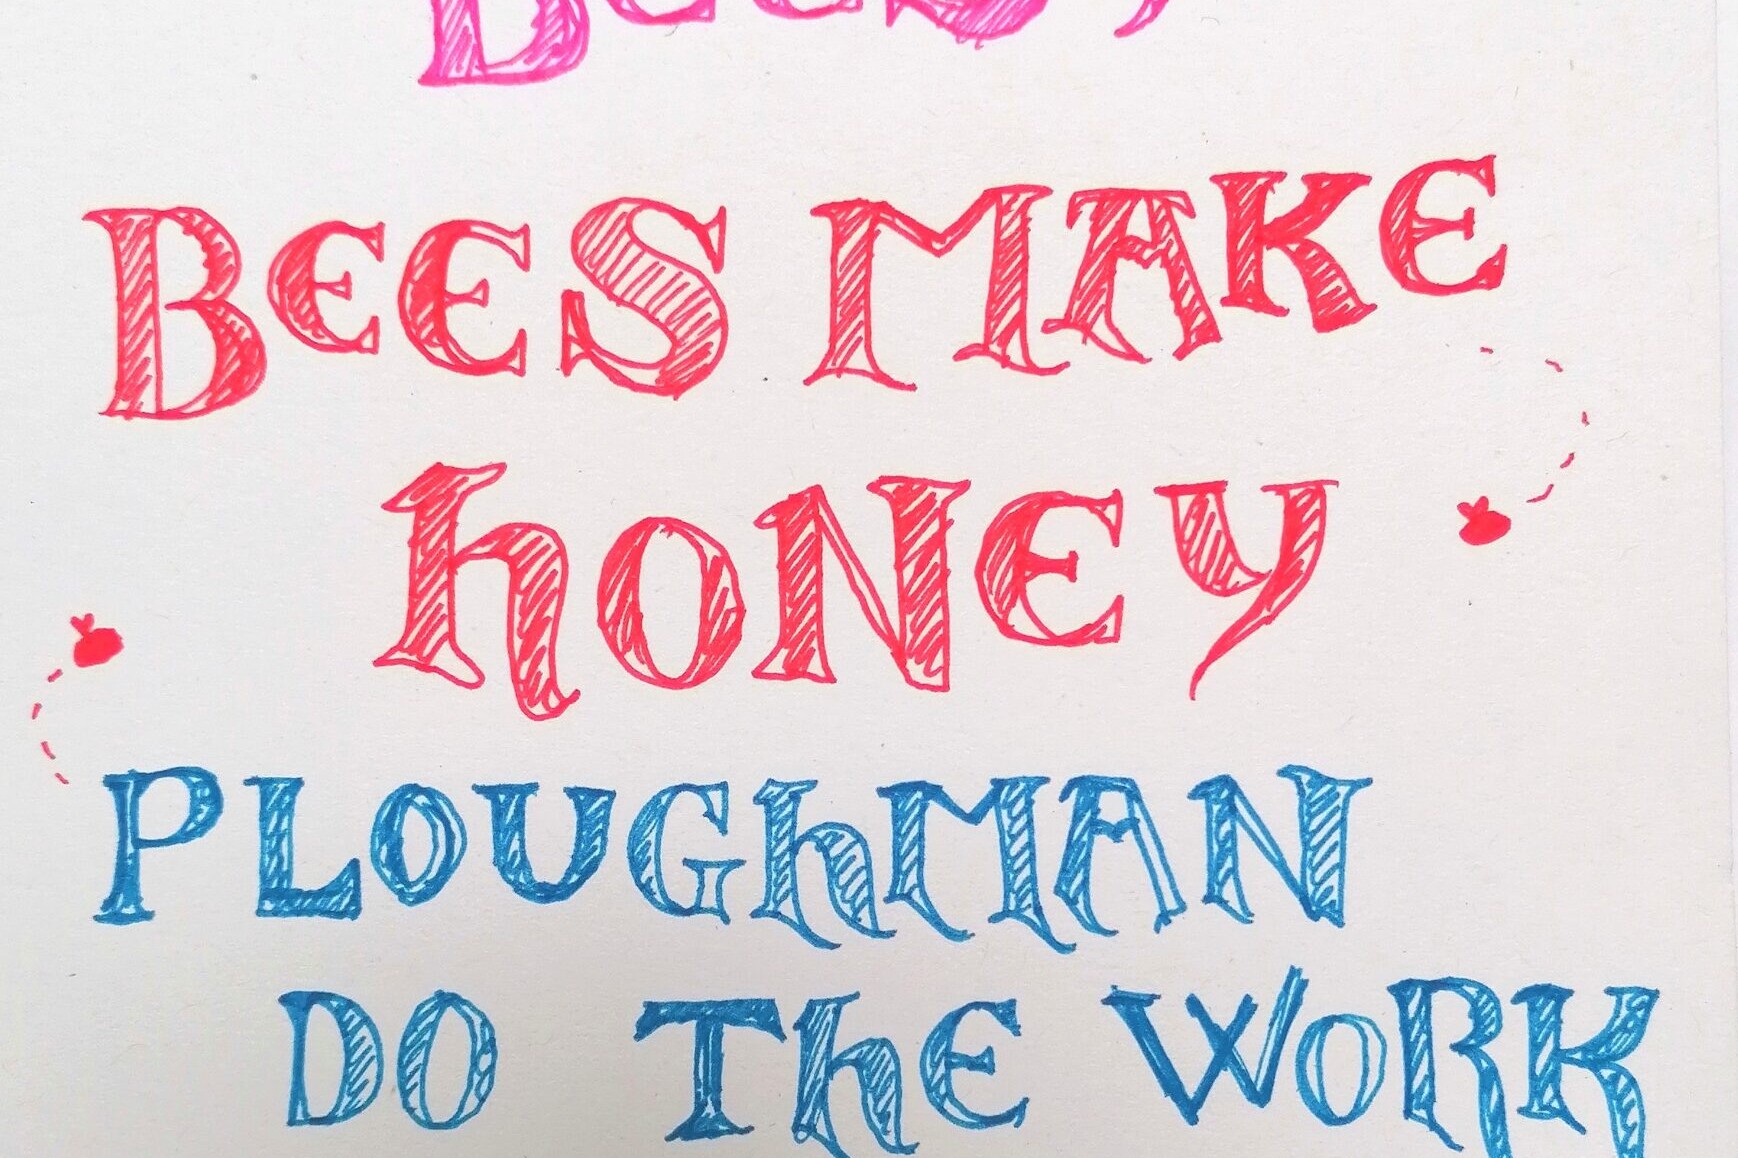 BEES,
BEES MAKE
hONEY
PLOUGhMAN
DO ThE WORK